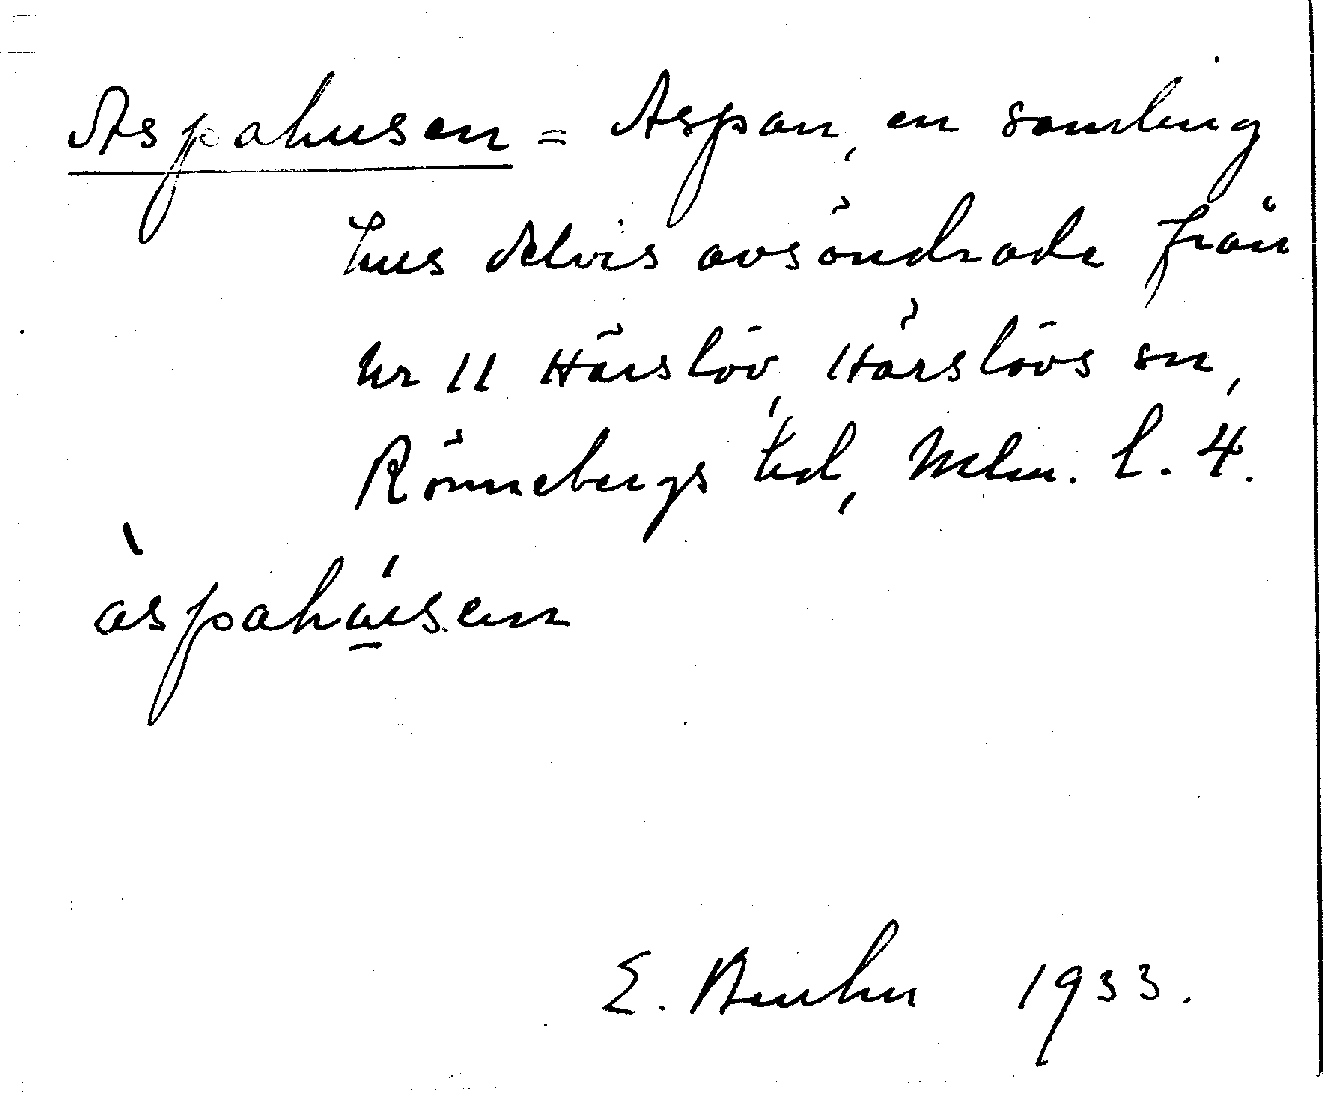 Aspahusen = Aspan, en samling
hus delvis avsöndrade från
nr 11 Härslöv, Härslövs sn,
Rönnebergs hd, Mlm. l. 4.
àspaháusen
E. 1933.